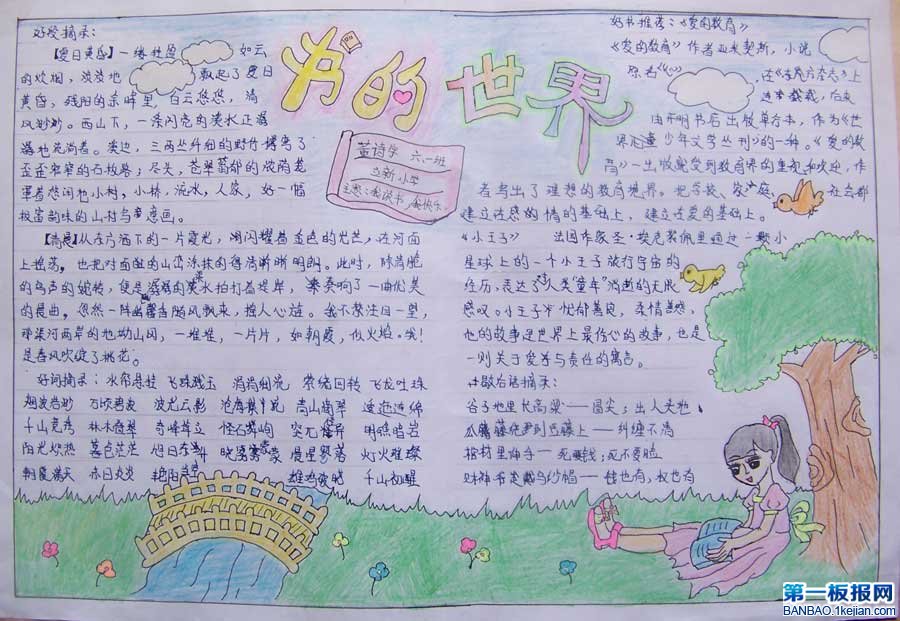 好段摘录：
【夏日黄昏】一缕
如云
的炊烟，淡淡地
飘起了夏日
黄昏，残阳的余晖里，白云悠悠，清
风
西山下，一条闪亮的溪水正
地流淌着。溪边，三两丛纤细的野竹掩离了
歪歪窄窄的石板路；尽头，苍翠
的浓荫笼
罩着悠闲的小村，小桥，流水，人家，好一幅
极富韵味的山村写意画。
【清晨】从东方洒下的一片霞光，湖闪耀着金色的光芒，在河面
上摇荡，也把对面
的山峦涂抹的得清晰明朗。此时，除清脆
的鸟声的婉转，便是
水拍打着堤岸，奏响了一曲优美
的晨曲。忽然一阵幽馨香随风飘来，撞人心扉。我不禁注目一望，
河两岸的
山冈，一堆堆，一片片，如朝霞，似火焰。哦！
是春风吹绽了桃花。
好词摘录：水帘悬挂 飞珠溅玉 涓涓细流 萦绕回转 飞龙吐珠
烟波浩渺 万顷碧波 波光云影 沧海
青山幽翠 逶迤连绵
千山竞秀 林木葱翠 奇峰耸立 怪石嶙峋 突兀
明眸皓齿
阳光炽热 暮色茫茫 旭日东升
晨星寥落 灯火璀璨
朝霞满天 赤日炎炎 艳阳
雄鸡破晓 千山初醒
书的世界
董诗宇 六.一班
立新小学
主题：我读书，我快乐。
好书推荐：《爱的教育》
《爱的教育》作者亚米契斯，小说
原名《心》
，在《东方杂志》上
连年载载，后交
由开明书店出版单行本，作为《世
界
少年文学丛刊》的一种。《爱的教
育》一出版就受到教育界的重视和欢迎，作
者写出了理想的教育境界。把学校、家庭、
社会都
建立在感的情的基础上，建立在爱的基础上。
《小王子》 法国作家圣·埃克苏佩里通过一颗小
星球上的一个小王子旅行宇宙的
经历，表达了对人类"童年"消逝的无限
感叹。小王子
忧郁善良，柔情善感，
他的故事是世界上最伤心的故事，也是
一则关于爱与责任的寓言。
歇后语摘录：
谷子地里长高粱——冒尖；出人头地
瓜藤
绕到豆藤上——纠缠不清
棺材里伸手——死要钱；死不要脸
财神爷戴乌纱帽——钱也有，权也有
第一板报网
BANBAO.1kejian.com